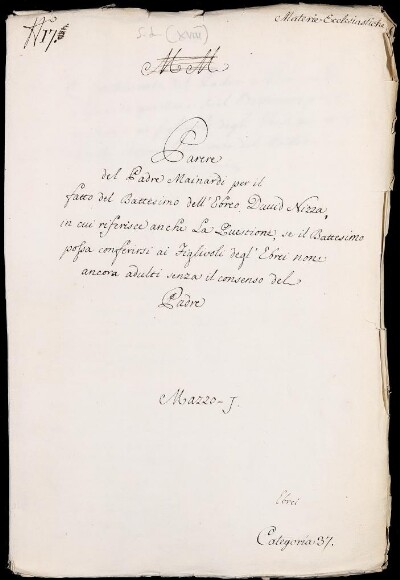 N.º 17.
S.d. (XVIII)
Materie Ecclesiastiche
M M
Parere
del Padre Mainardi per il
fatto del Battesimo dell'Ebreo, David Nizza,
in cui riferisce anche La Questione, se il Battesimo
possa conferirsi ai Figlivoli degl' Ebrei non
ancora adulti senza il consenso del
Padre
Mazzo-J.
Ebrei
Categoria 37.